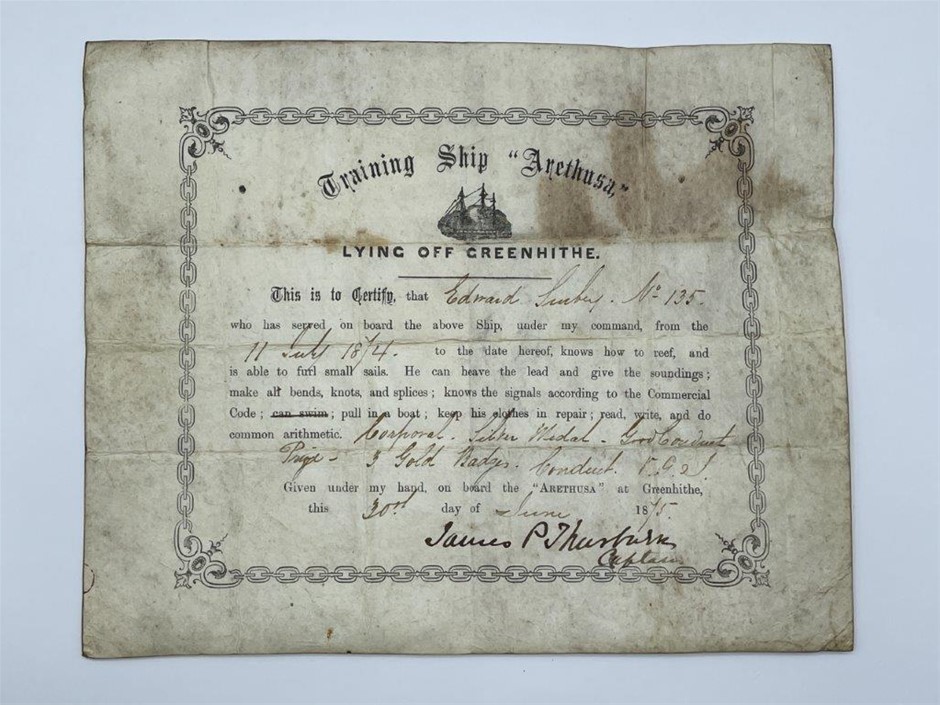 Training Ship "Arethusa,"
LYING OFF GREENHITHE.
This is to Certify, that Edward No 135.
who has served on board the above Ship, under my command, from the
11 July 1874. to the date hereof, knows how to reef, and
is able to furl small sails. He can heave the lead and give the soundings;
make all bends, knots, and splices; knows the signals according to the Commercial
Code; can swim; pull in a boat; keep his clothes in repair; read, write, and do
common arithmetic. Corporal - Silver Medal - Good Conduct
Prize - 3 Gold Badges. Conduct. V. G.
Given under my hand, on board the "ARETHUSA" at Greenhithe,
this 30th day of June 1875.
James P Thurburn
Captain